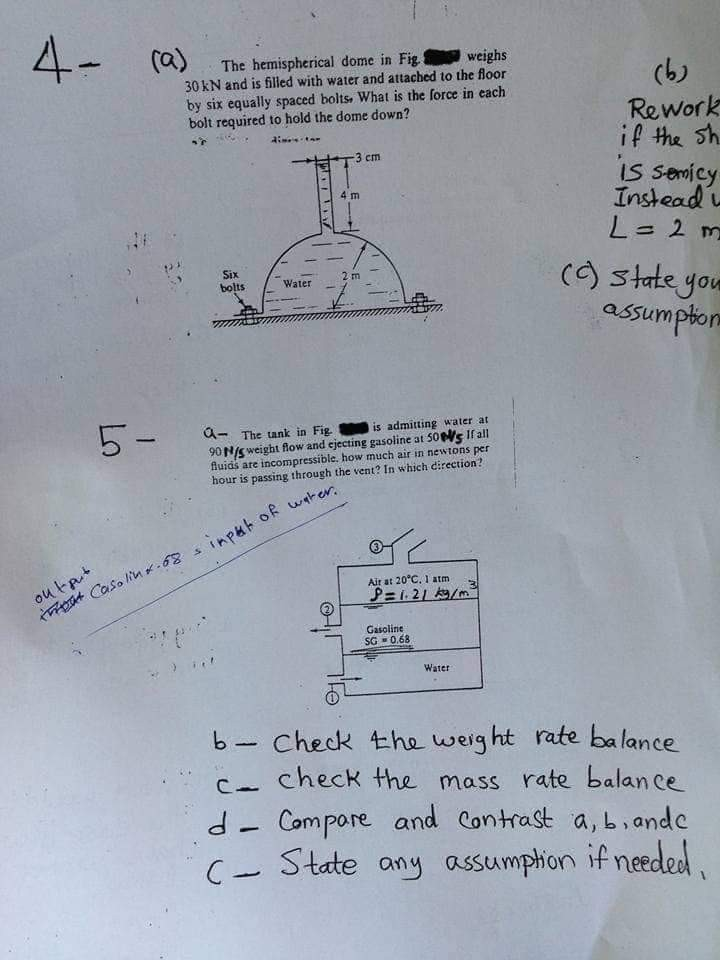 4- (a)
The hemispherical dome in Fig. weighs
30 kN and is filled with water and attached to the floor
by six equally spaced bolts. What is the force in each
bolt required to hold the dome down?
3 cm
4 m
2 m
Six
bolts
Water
(b)
Rework
if the sh
is semicy
Instead
L = 2 m
(c) State you
assumption
5-
a- The tank in Fig. is admitting water at
90 N/s weight flow and ejecting gasoline at 50 N/s If all
fluids are incompressible, how much air in newtons per
hour is passing through the vent? In which direction?
output
Gasoline .68 = input of water.
3
Air at 20°C, 1 atm
ρ = 1.21 kg/m3
2
Gasoline
SG = 0.68
Water
1
b- Check the weight rate balance
c- check the mass rate balance
d- Compare and contrast a, b, and c
c- State any assumption if needed.